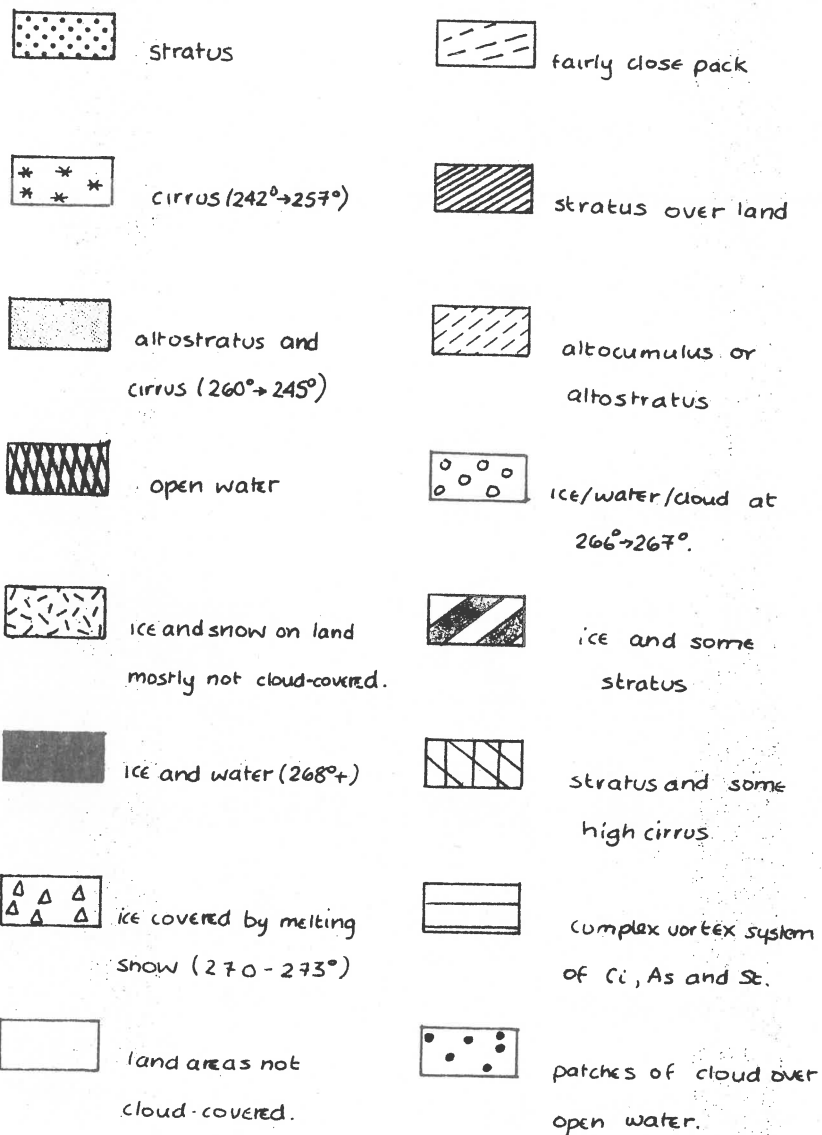 stratus
cirrus (242°→257°)
altostratus and
cirrus (260°→245°)
open water
ice and snow on land
mostly not cloud-covered.
ice and water (268°+)
ice covered by melting
snow (270-273°)
land areas not
cloud-covered.
fairly close pack
stratus over land
altocumulus or
altostratus
ice/water/cloud at
266°→267°.
ice and some
stratus
stratus and some
high cirrus
complex vortex system
of Ci, As and St.
patches of cloud over
open water.